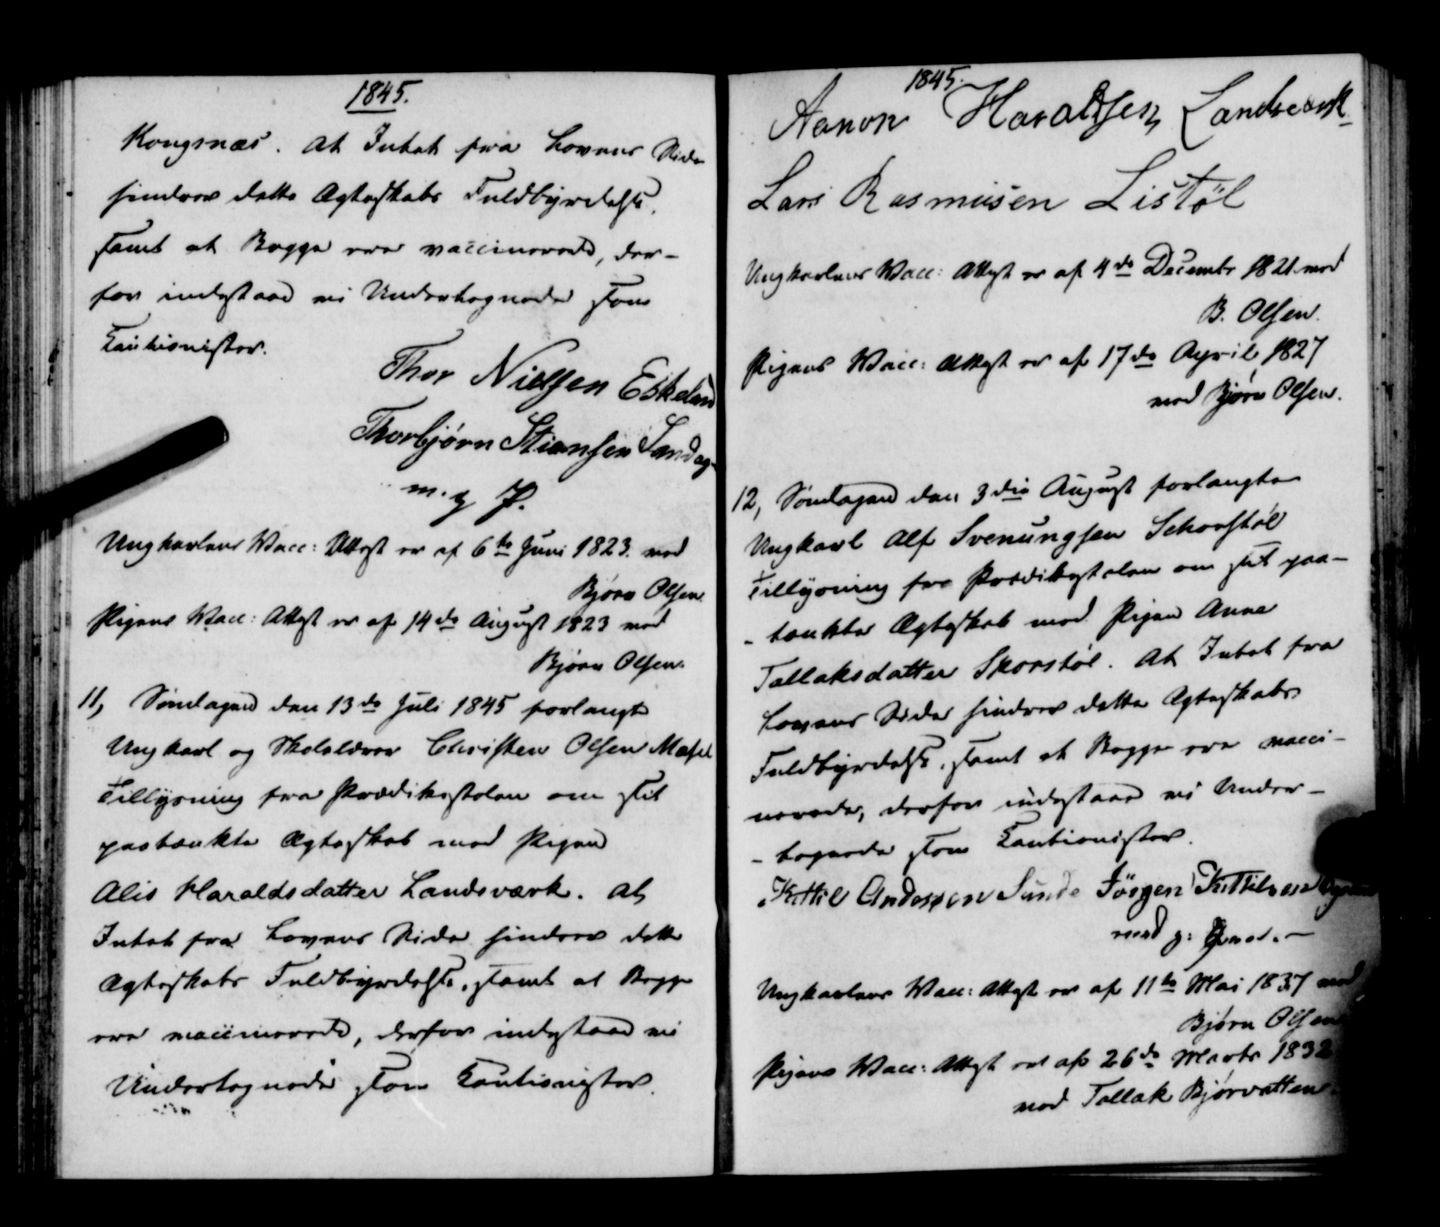 1845.
Kongsnæs. At Intet fra Lovens Side
hindrer dette Ægteskabs Fuldbyrdelse,
samt at Begge ere vaccinerede, der-
for indestaae vi Undertegnede som
Cautionister.
Thor Nielsen Eskeland
Thorbjørn Stiansen Sandag-
m. g P.
Ungkarlens Vacc: Attest er af 6te Juni 1823 ved
Bjørn Olsen.
Pigens Vacc: Attest er af 14de August 1823 ved
Bjørn Olsen.
11, Søndagen den 13de Juli 1845 forlangte
Ungkarl og Skolelærer Christen Olsen
Tillysning fra Prædikestolen om sit
paatænkte Ægteskab med Pigen
Alis Haraldsdatter Landsværk. At
Intet fra Lovens Side hindrer dette
Ægteskabs Fuldbyrdelse, samt at Begge
ere vaccinerede, derfor indestaae vi
Undertegnede som Cautionister.
1845.
Aanon Haraldsen Landsværk
Lars Rasmusen Listøl
Ungkarlens Vacc: Attest er af 4de Decembr 1821 ved
B. Olsen.
Pigens Vacc: Attest er af 17de April 1827
ved Bjørn Olsen.
12, Søndagen den 3die August forlangte
Ungkarl Alf Svenungsen Schorstøl
Tillysning fra Prædikestolen om sit paa-
- tænkte Ægteskab med Pigen Anne
Tallaksdatter Skorstøl. At Intet fra
Lovens Side hindrer dette Ægteskabs
Fuldbyrdelse, samt at Begge ere vacci-
nerede, derfor indestaae vi Under-
- tegnede som Cautionister.
Kittil Andersøen Sunde Jörgen Kittilsen
med g: Penn. -
Ungkarlens Vacc: Attest er af 11te Mai 1837 ved
Bjørn Olsen
Pigens Vacc: Attest er af 26de Marts 1832
ved Tallak Bjørvatten.